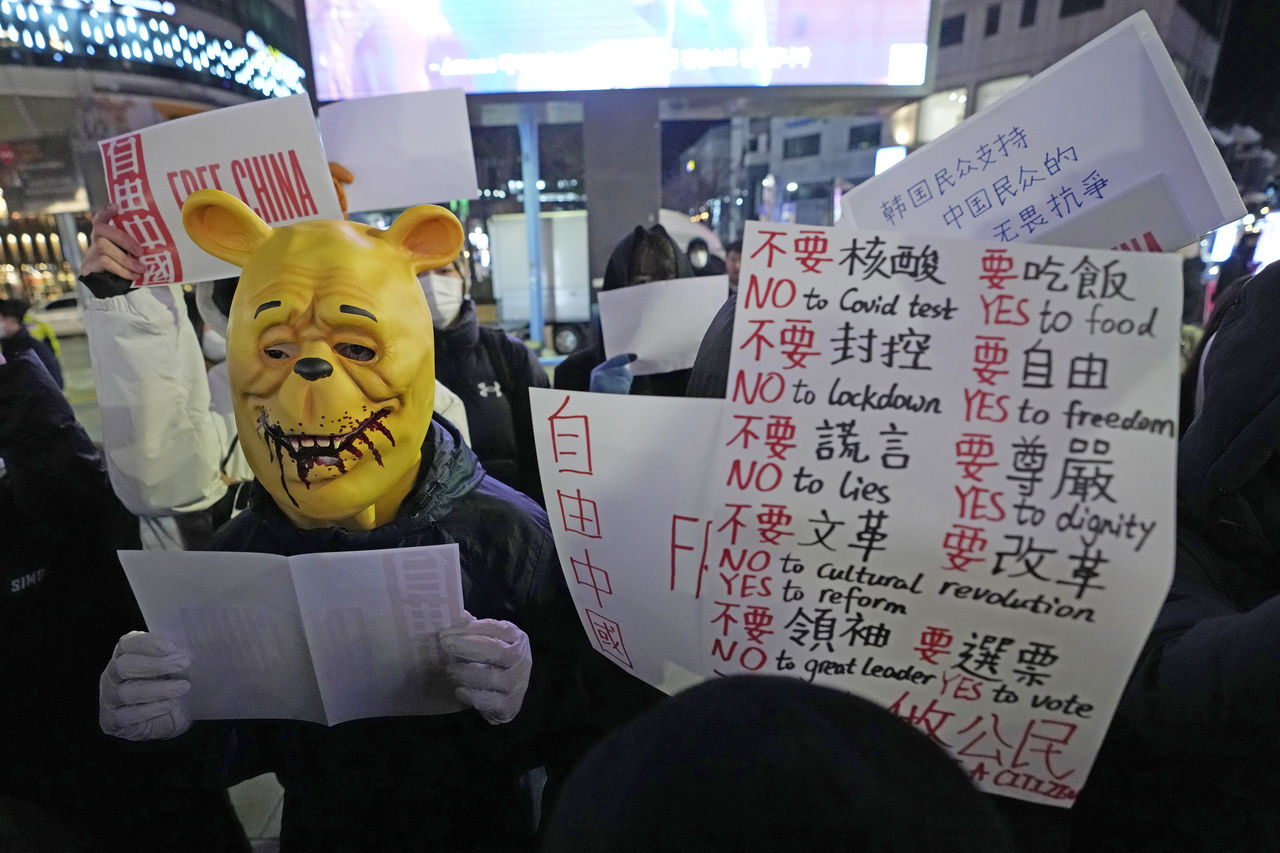 自由中國
FREE CHINA
韩国民众支持
中国民众的
无畏抗爭
不要核酸 要吃飯
NO to Covid test YES to food
不要封控 要自由
NO to lockdown YES to freedom
不要謊言 要尊嚴
NO to lies YES to dignity
不要文革 要改革
NO to cultural revolution
YES to reform
不要領袖 要選票
NO to great leader YES to vote
做公民
A CITIZEN
自由中國
F